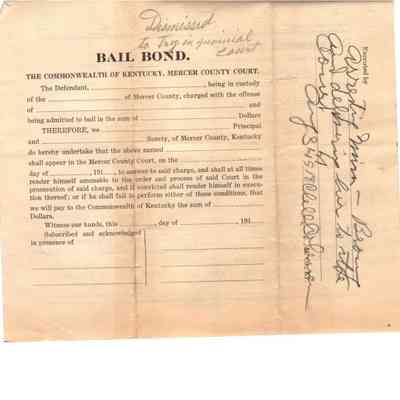 Dismissed
to Try in juvenial
Court
BAIL BOND.
THE COMMONWEALTH OF KENTUCKY, MERCER COUNTY COURT.
The Defendant, , being in custody
of the of Mercer County, charged with the offense
of and
being admitted to bail in the sum of Dollars
THEREFORE, we Principal
and Surety, of Mercer County, Kentucky
do hereby undertake that the above named
shall appear in the Mercer County Court, on the
day of , 191 , to answer to said charge, and shall at all times
render himself amenable to the order and process of said Court in the
prosecution of said charge, and if convicted shall render himself in execu-
tion thereof; or if he shall fail to perform either of these conditions, that
we will pay to the Commonwealth of Kentucky the sum of
Dollars.
Witness our hands, this day of , 191
Subscribed and acknowledged
in presence of
Executed by